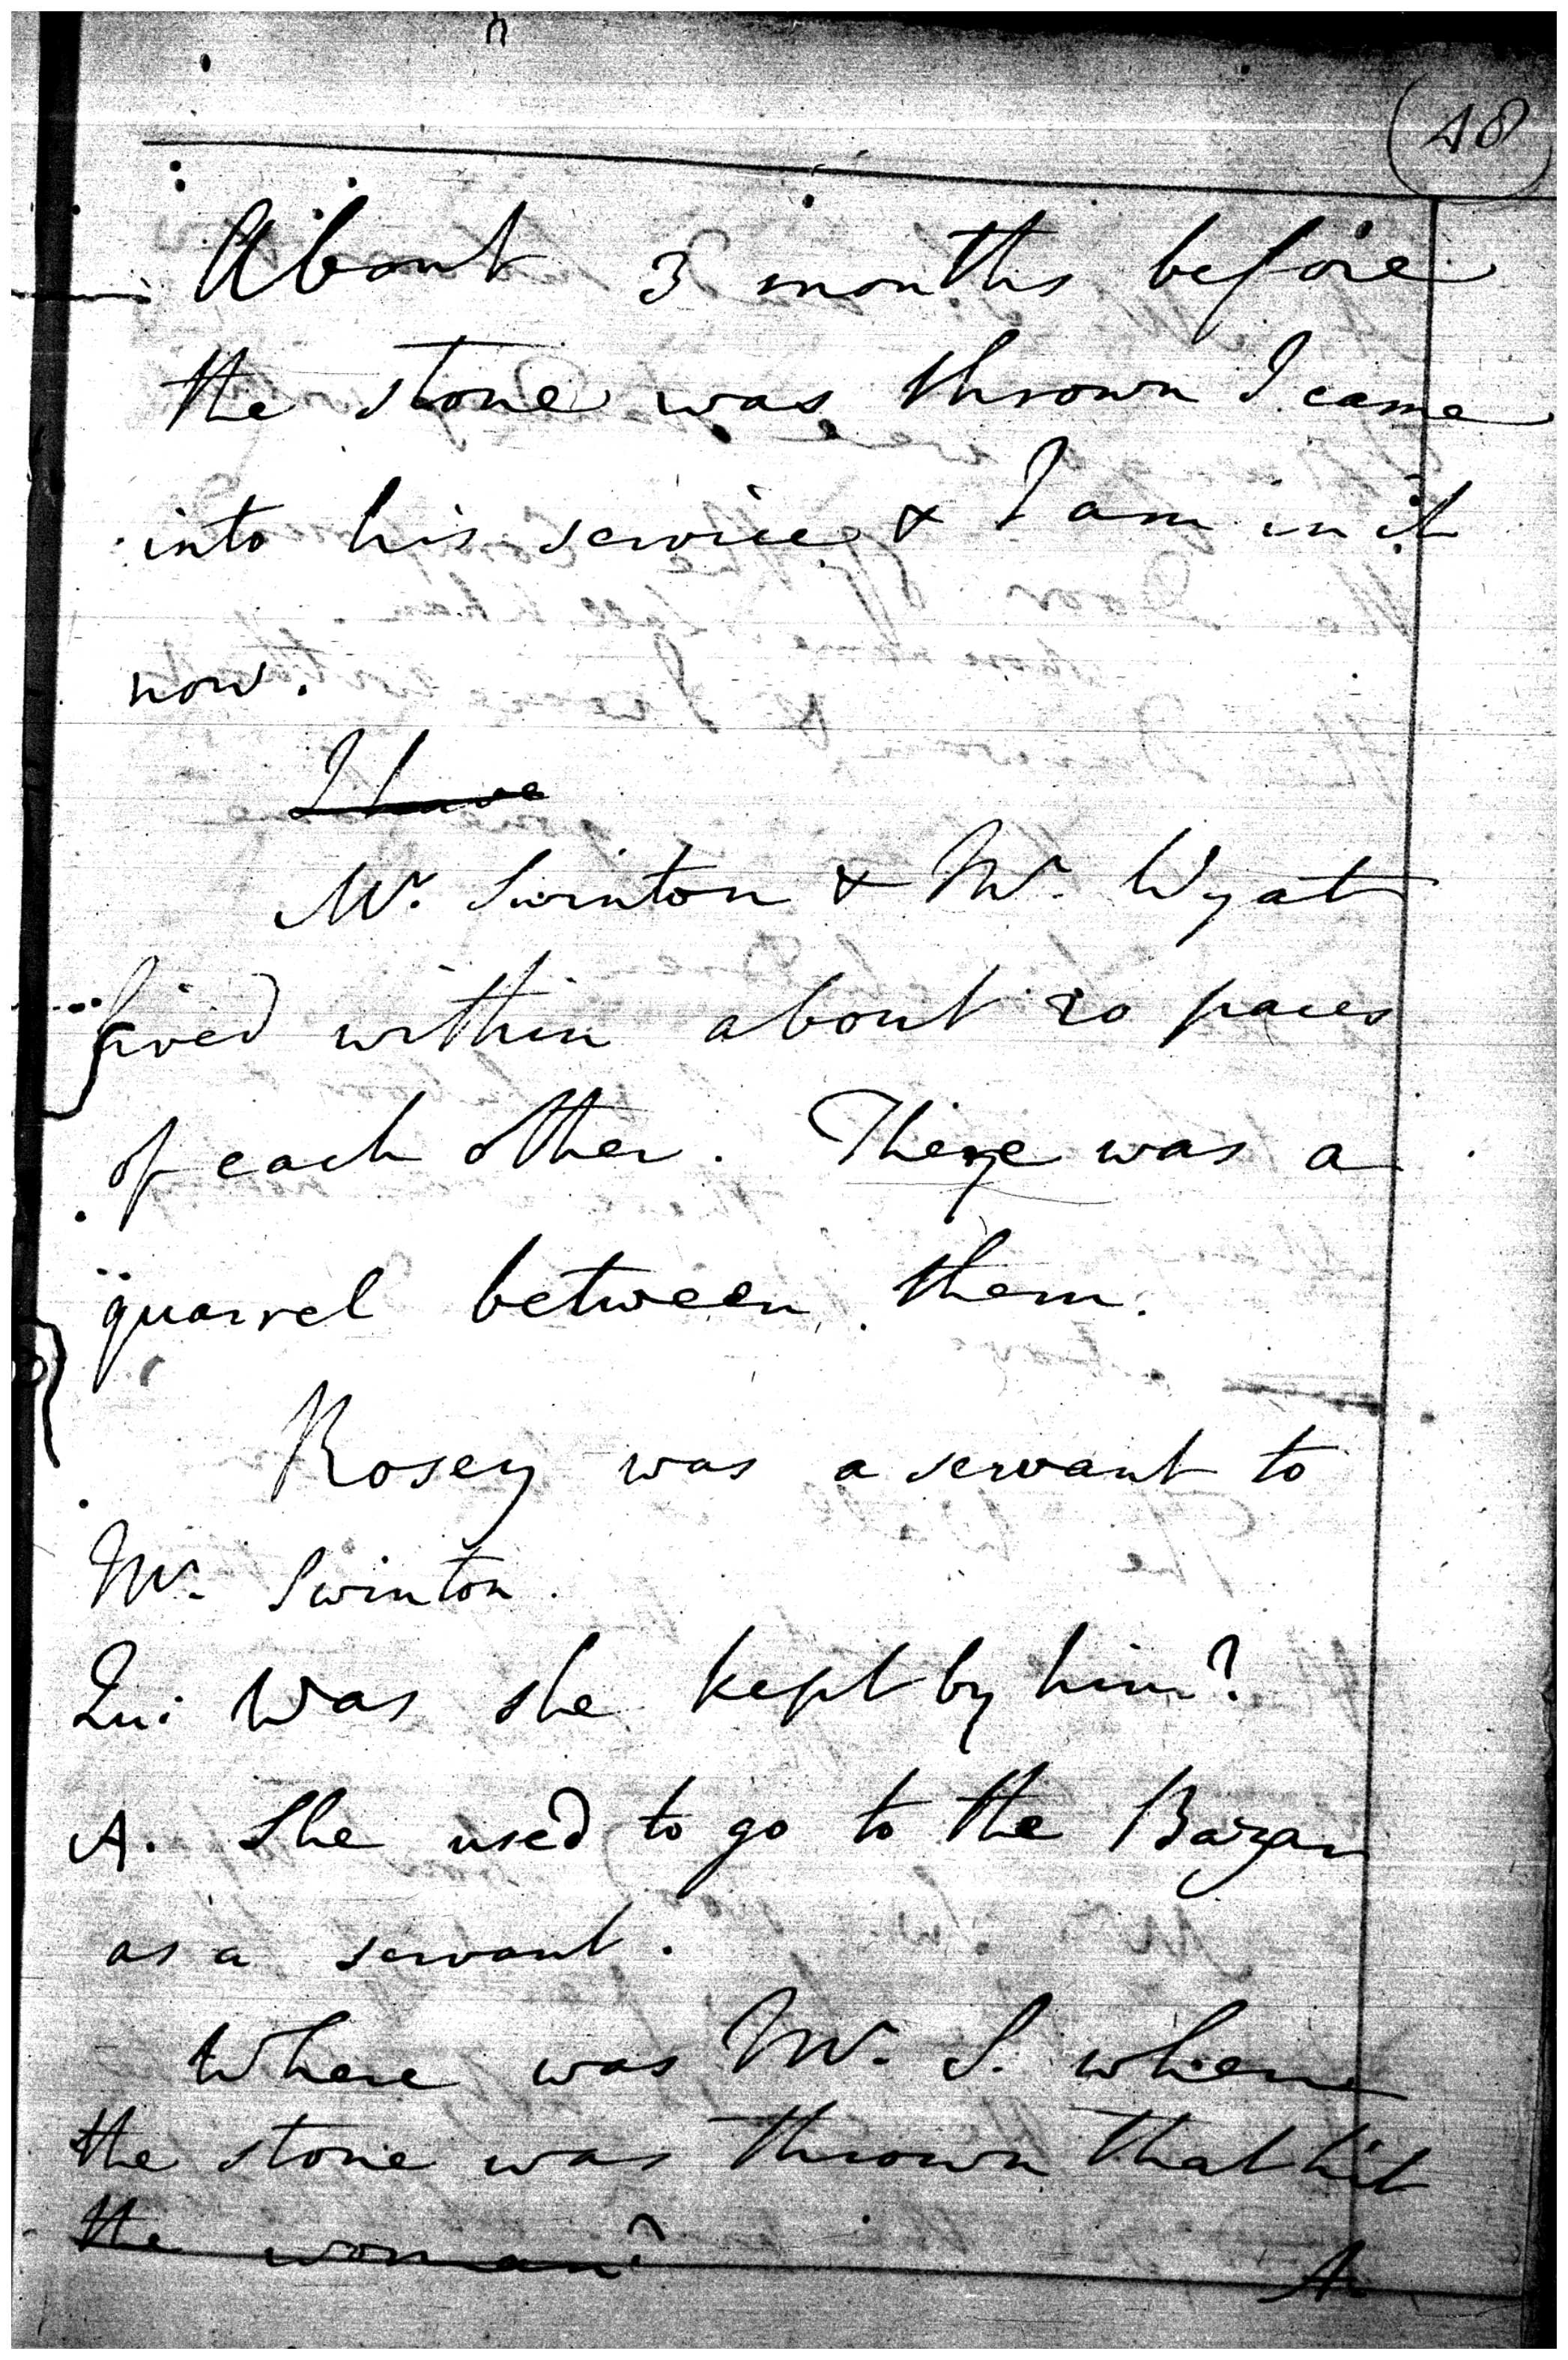 48
About 3 months before
the stone was thrown I came
into his service & I am in it
now.
I have
Mr. Swinton & Mr. Wyat
lived within about 20 paces
of each other. There was a
quarrel between them.
Rosey was a servant to
Mr. Swinton.
Qu: Was she kept by him?
A. She used to go to the Bazar
as a servant.
Where was Mr. S. when
the stone was thrown that hit
the woman?
A.